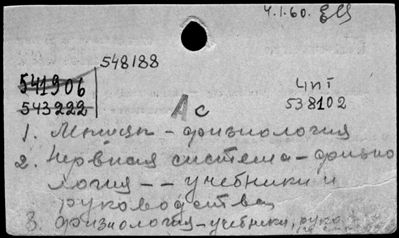 4.1.60.
548188
541906
543222
Ас
чпт
538102
1. – физиология
2. Нервная система – физио
логия – – учебники и
руководства
3. Физиология – учебники, руко